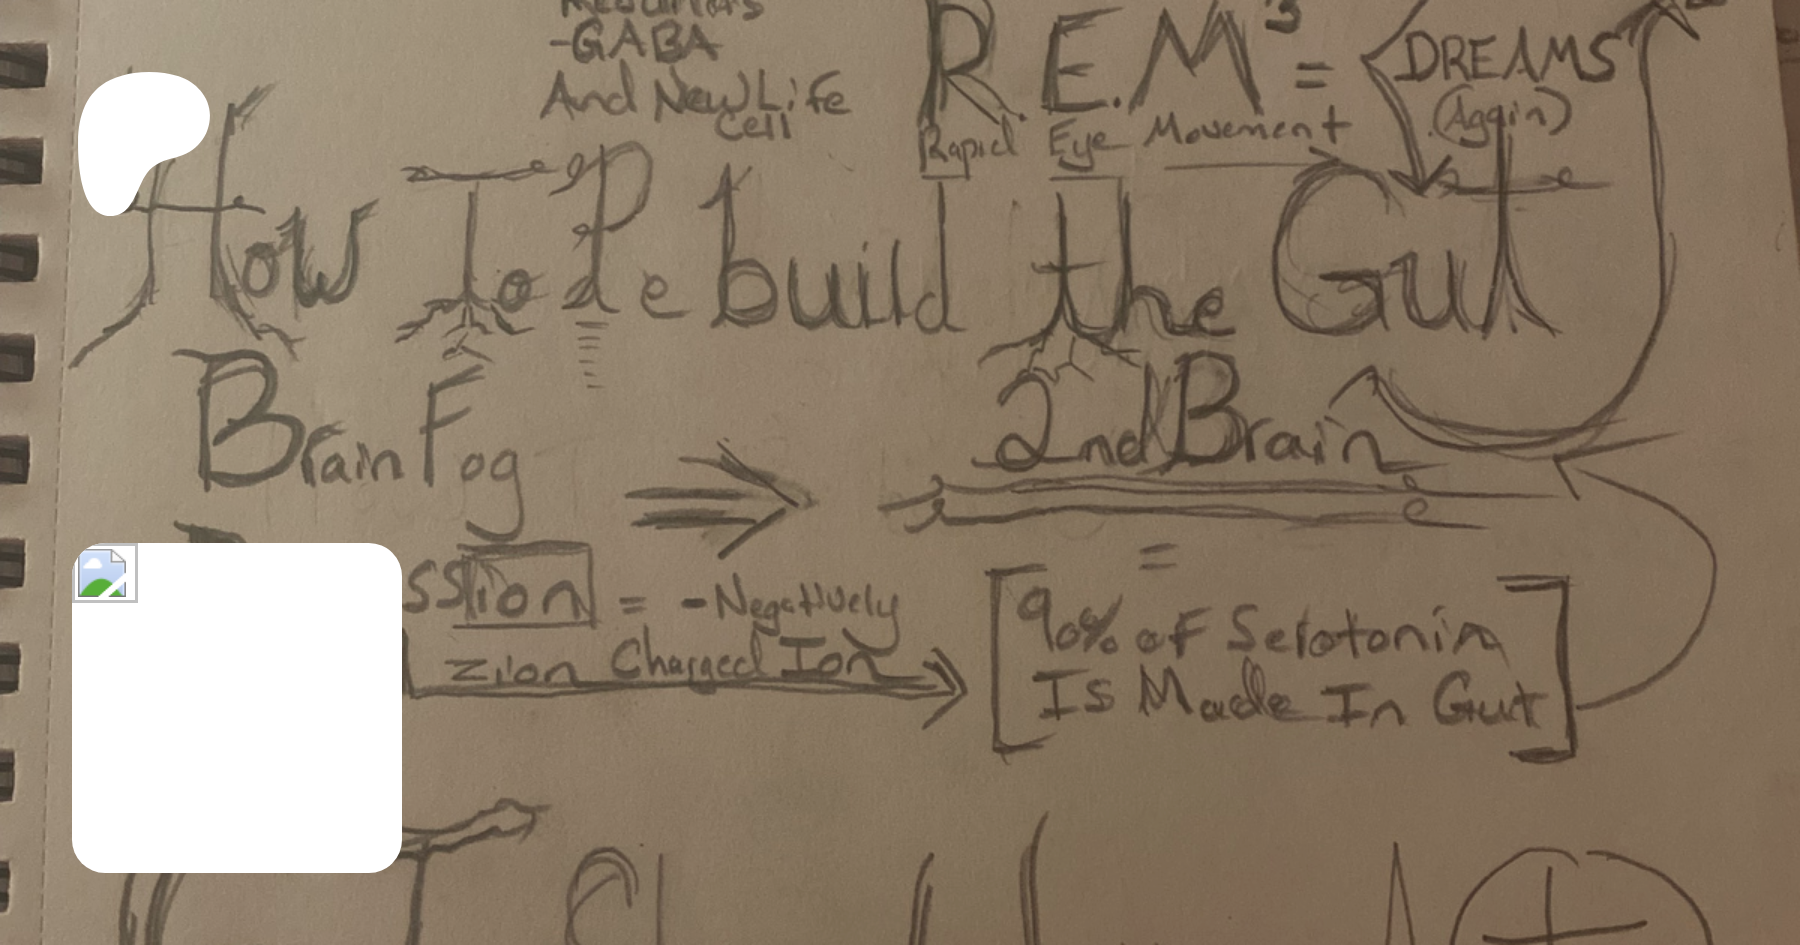 -GABA
And New Life
Cell
R.E.M³ =
DREAMS
(Again)
Rapid Eye Movement
How To Rebuild the Gut
Brain Fog
2nd Brain
=
ssion = - Negatively
zion Charged Ion
[90% of Serotonin
Is Made In Gut]